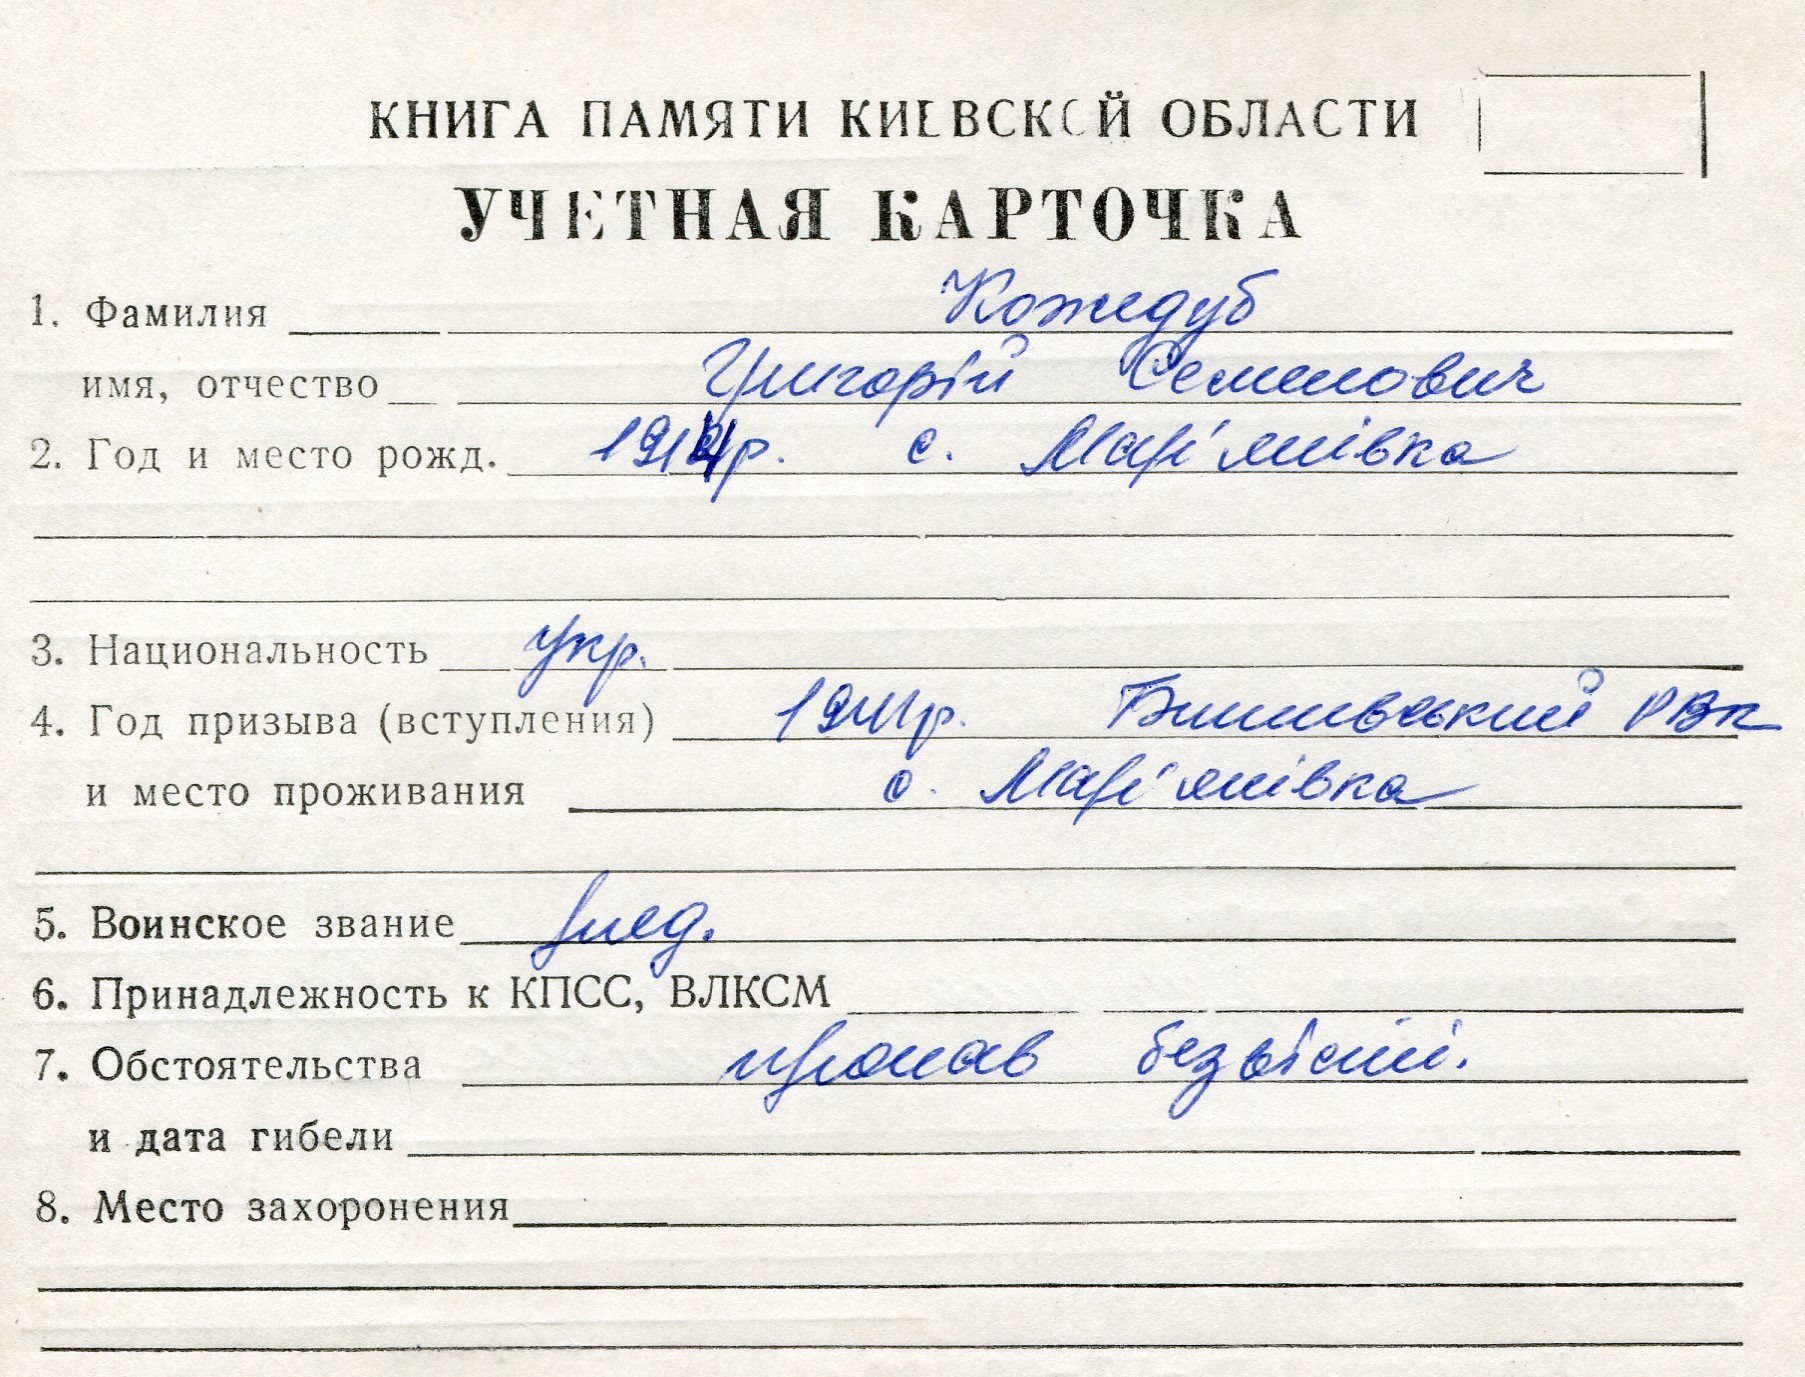 КНИГА ПАМЯТИ КИЕВСКОЙ ОБЛАСТИ
УЧЕТНАЯ КАРТОЧКА
1. Фамилия Кожедуб
имя, отчество Григорій Семенович
2. Год и место рожд. 1914р. с. Мар'янівка
3. Национальность укр.
4. Год призыва (вступления) 1941р. Бишівський РВК
и место проживания с. Мар'янівка
5. Воинское звание ряд.
6. Принадлежность к КПСС, ВЛКСМ
7. Обстоятельства пропав безвісті.
и дата гибели
8. Место захоронения